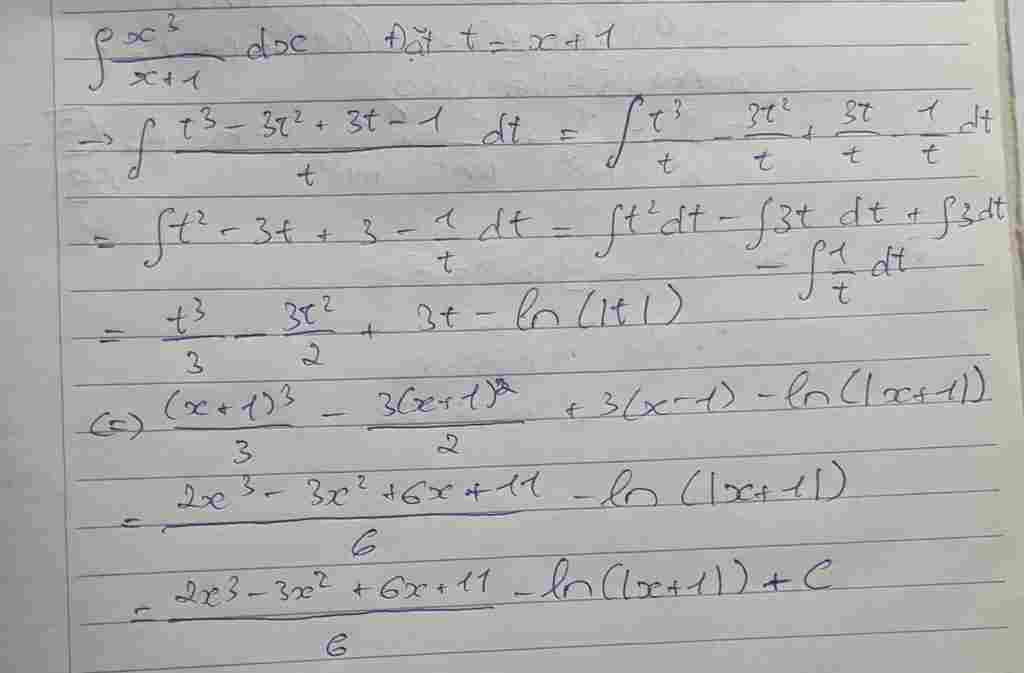 ∫ x³/(x+1) dx Đặt t = x+1
→ ∫ (t³ - 3t² + 3t - 1)/t dt = ∫ t³/t - 3t²/t + 3t/t - 1/t dt
= ∫ t² - 3t + 3 - 1/t dt = ∫ t² dt - ∫ 3t dt + ∫ 3 dt
- ∫ 1/t dt
= t³/3 - 3t²/2 + 3t - ln(|t|)
(=) (x+1)³/3 - 3(x+1)²/2 + 3(x-1) - ln(|x+1|)
= (2x³ - 3x² + 6x + 11)/6 - ln(|x+1|)
= (2x³ - 3x² + 6x + 11)/6 - ln(|x+1|) + C